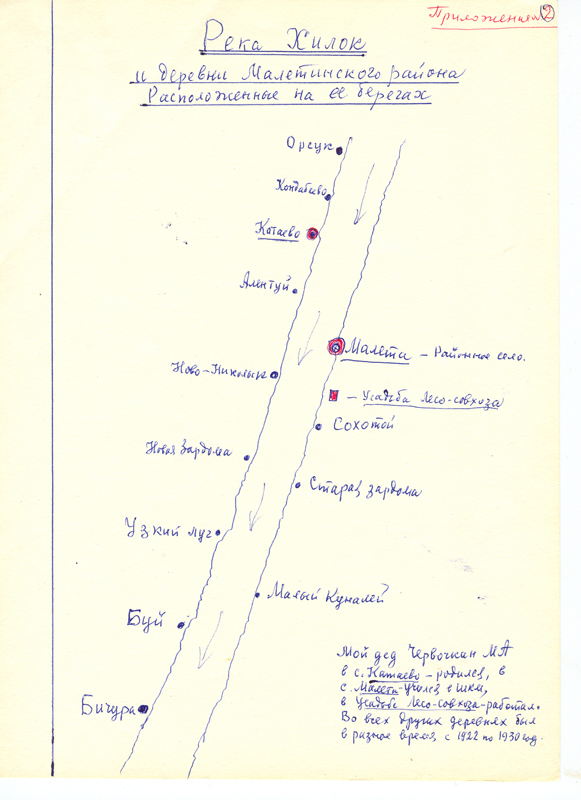 Приложение 2
Река Хилок
и деревни Малетинского района
Расположенные на ее берегах
Орсук
Кондабаево
Катаево
Алентуй
Малета – Районное село.
Ново-Никольск
– Усадьба Лесо-совхоза
Сохотой
Новая Зардома
Старая зардома
Узкий луг
Малый Куналей
Буй
Бичура
Мой дед Червочкан МА
в с. Катаево – родился, в
с. Малета – учился в ШКМ,
в Усадьбе Лесо-совхоза – работал.
Во всех других деревнях был
в разное время, с 1922 по 1930 год.